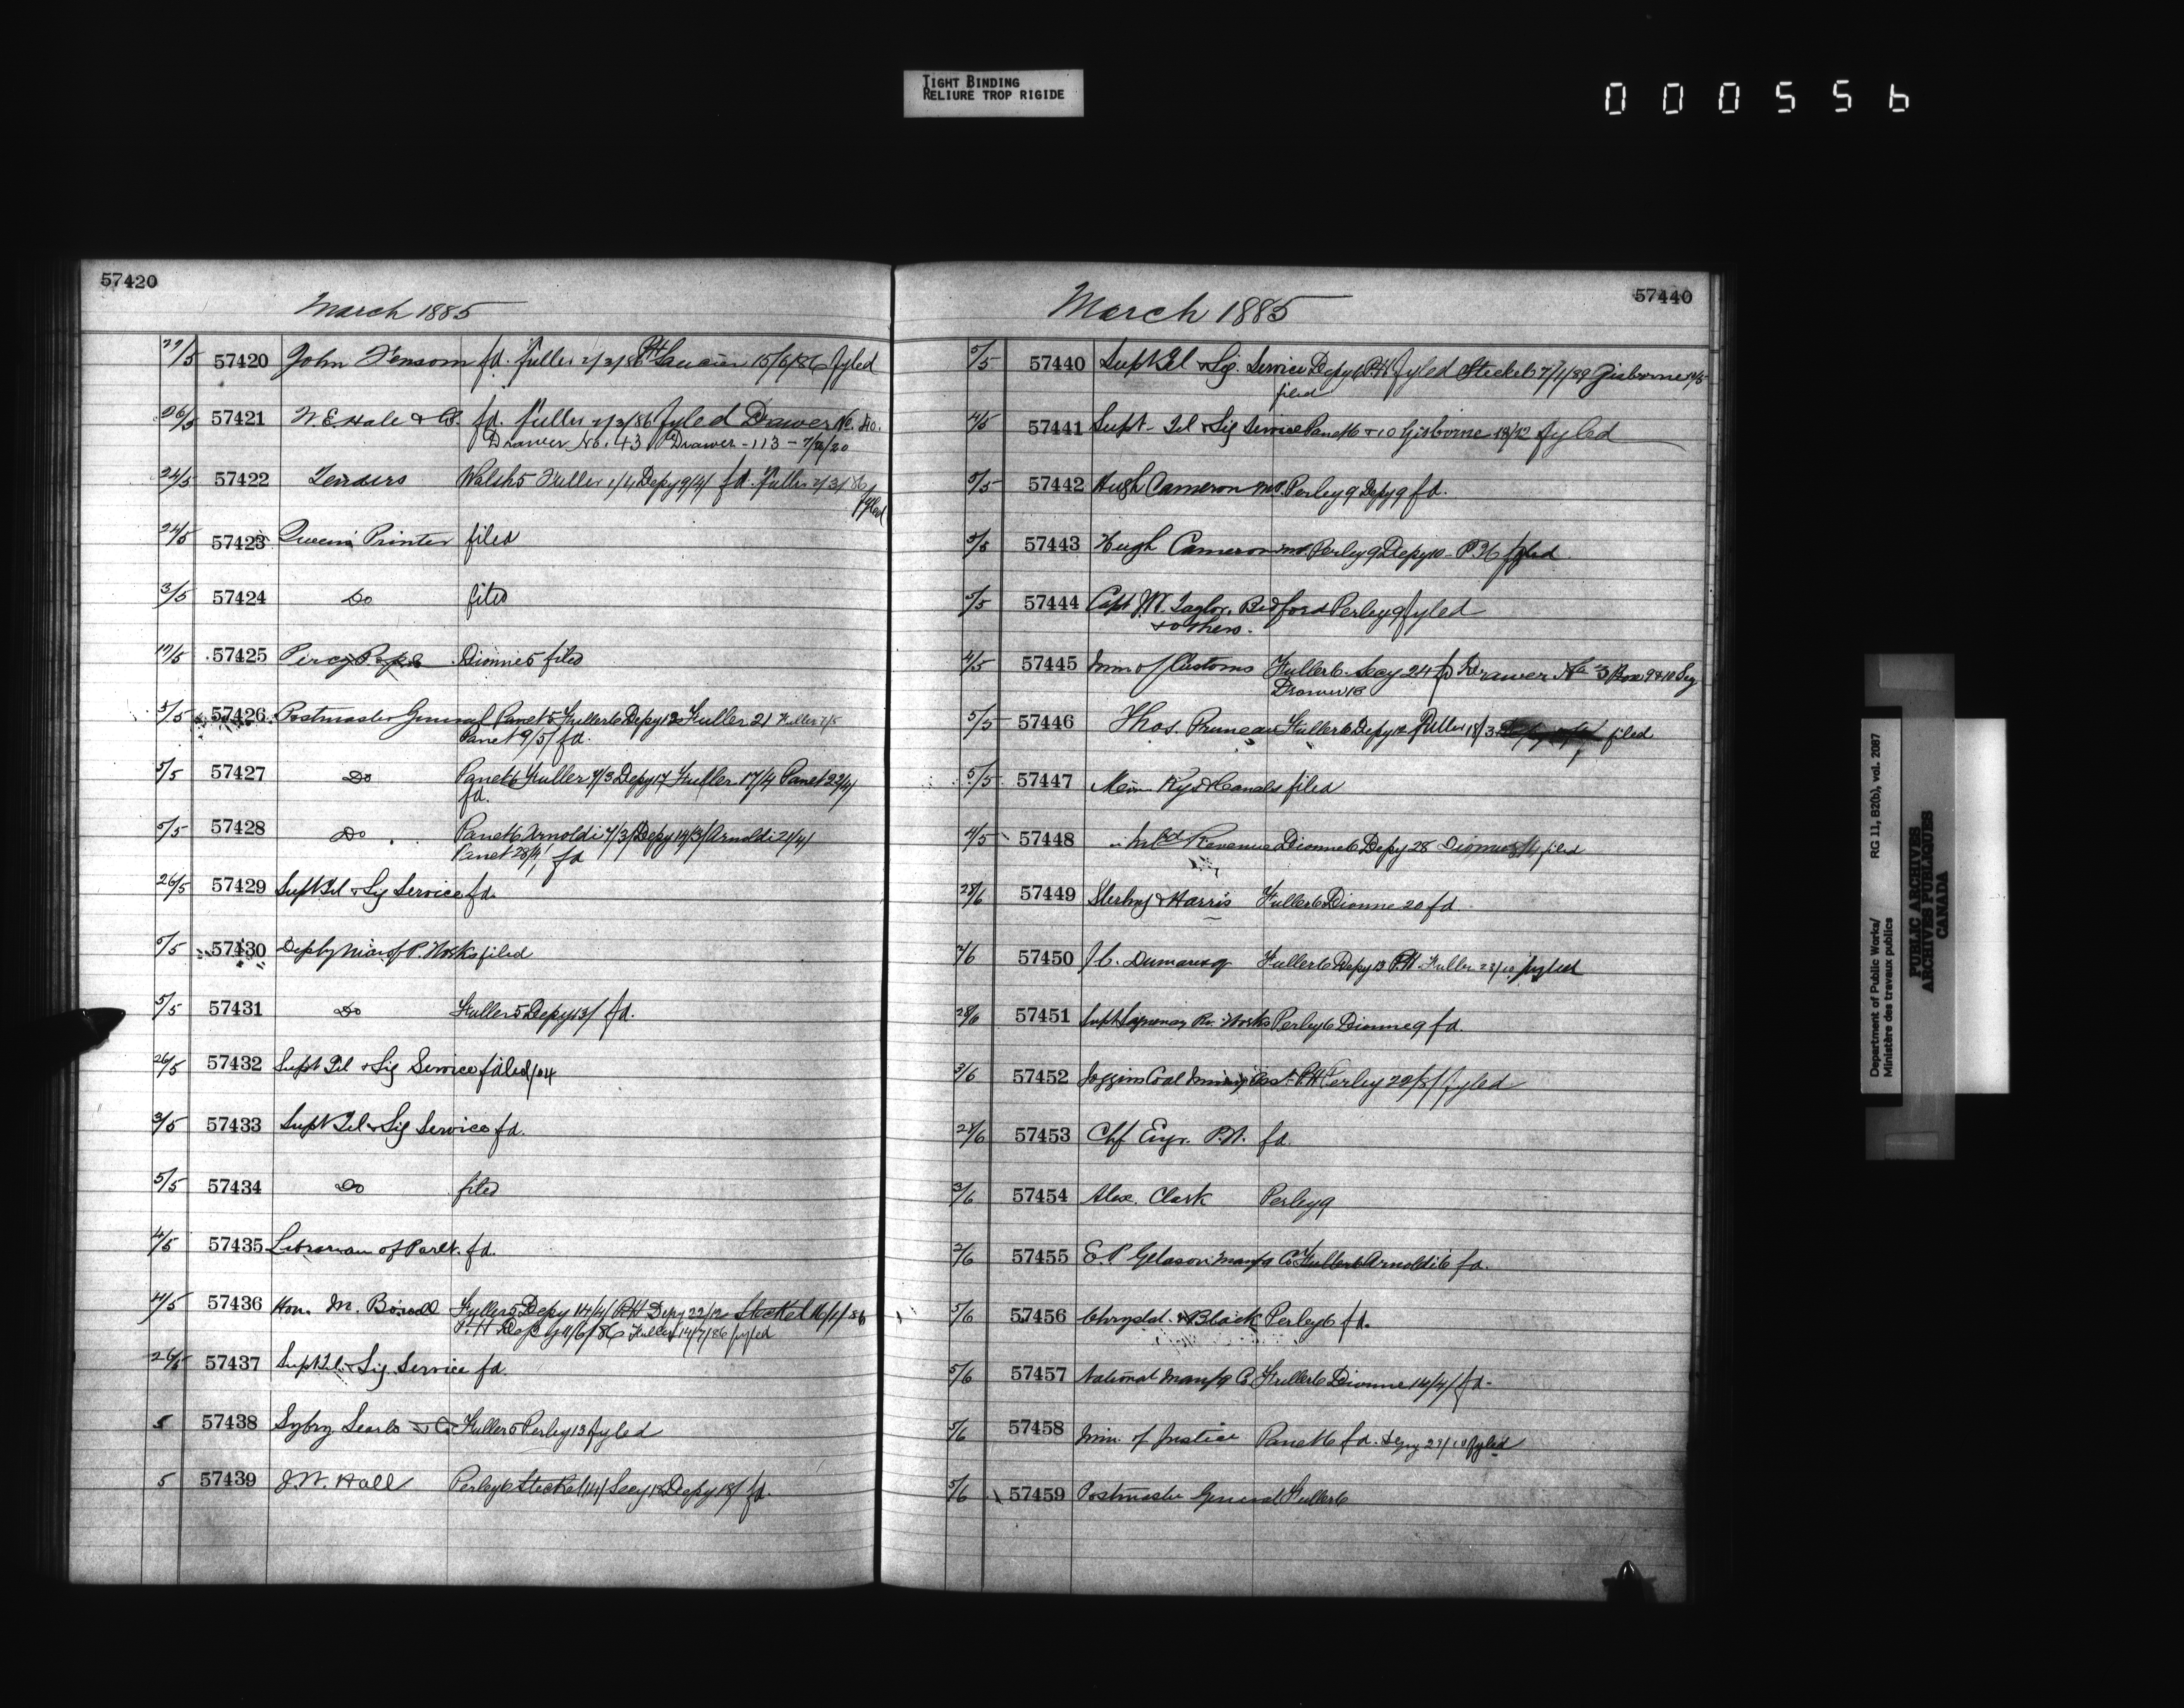 TIGHT BINDING
RELIURE TROP RIGIDE
000556
57420
March 1885
27/5 57420 John Fensom fd. Fuller 2/3/86 PH Saucier 15/6/86 fyled
26/5 57421 W. E. Hale & Co. fd. Fuller 2/3/86 fyled Drawer No. 40.
Drawer No. 43 Drawer - 113 - 7/9/20
24/5 57422 Tenders Walsh 5 Fuller 1/4 Depy 9/4/ fd. Fuller 2/3/86
fyled
24/5 57423 Queens Printer filed
3/5 57424 Do filed
19/5 57425 Percy Pope Dionne 5 filed
5/5 57426 Postmaster General Panet 5 Fuller 6 Depy 12 Fuller 21 Fuller 7/5
Panet 9/5/ fd.
5/5 57427 Do Panet 6 Fuller 7/3 Depy 17 Fuller 17/4 Panet 22/4/
fd.
5/5 57428 Do Panet 6 Arnoldi 7/3/ Depy 14/3/ Arnoldi 21/4/
Panet 28/4/ fd
26/5 57429 Supt Tel & Sig Service fd.
5/5 57430 Deputy Min of P. Works filed
5/5 57431 Do Fuller 5 Depy 13/ fd.
26/5 57432 Supt Tel & Sig Service filed
3/5 57433 Supt Tel & Sig Service fd.
5/5 57434 Do filed
4/5 57435 Librarian of Parlt. fd.
4/5 57436 Hon. M. Bowell Fuller 5 Depy 14/4/ PH Depy 22/12 Steckel 16/1/86
P.H Depy 11/6/86 Fuller 14/7/86 fyled
26/5 57437 Supt Tel & Sig Service fd.
5 57438 Sybry Searls & Co Fuller 5 Perley 13 fyled
5 57439 J. W. Hall Perley 6 Steckel 14/ Secy 18 Depy 18/ fd.
57440
March 1885
5/5 57440 Supt Tel & Sig. Service Depy 6 PH fyled Steckel 7/1/89 Gisborne
filed
4/5 57441 Supt - Tel & Sig Service Panet 6 & 10 Gisborne 18/12 fyled
5/5 57442 Hugh Cameron M.P. Perley 9 Depy 9 fd.
5/5 57443 Hugh Cameron M.P. Perley 9 Depy 10 - P.H. fyled
5/5 57444 Capt W. Taylor, Bedford Perley 9 fyled
& others.
4/5 57445 Min of Customs Fuller 6. Secy 24 fd Drawer No 3 Box 9 & 10 Seg
Drawer 18
5/5 57446 Thos. Pruneau Fuller 6 Depy 12 Fuller 18/3 filed
5/5 57447 Min Rys & Canals filed
4/5 57448 " Inld Revenue Dionne 6 Depy 28 Dionne 8/4 filed
28/6 57449 Sterling & Harris Fuller 6 Dionne 20 fd.
2/6 57450 J C. Dumaresq Fuller 6 Depy 13 P.H Fuller 23/10 fyled
28/6 57451 Supt Saguenay Riv. Works Perley 6 Dionne 9 fd.
3/6 57452 Joggins Coal Mining Assn PH Perley 22/5/ fyled
28/6 57453 Chf Engr. P.W. fd.
3/6 57454 Alex. Clark Perley 9
2/6 57455 E. P. Gleason Manfg Co Fuller 6 Arnoldi 6 fd.
5/6 57456 Chrysdal & Black Perley 6 fd.
5/6 57457 National Manfg Co Fuller 6 Dionne 14/4/ fd.
5/6 57458 Min. of Justice Panet 6 fd. Depy 29/10 fyled
5/6 57459 Postmaster General Fuller 6
Department of Public Works/ RG 11, B2(b), vol. 2087
Ministère des travaux publics
PUBLIC ARCHIVES
ARCHIVES PUBLIQUES
CANADA